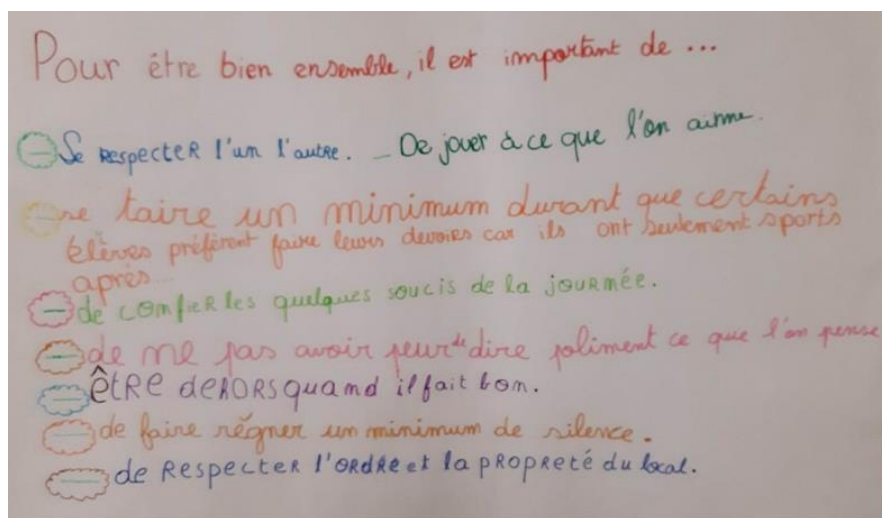 Pour être bien ensemble, il est important de ...
- Se respecter l'un l'autre. - De jouer à ce que l'on aime.
- se taire un minimum durant que certains
élèves préfèrent faire leurs devoirs car ils ont seulement sports
après
- de confier les quelques soucis de la journée.
- de ne pas avoir peur de dire poliment ce que l'on pense
- être dehors quand il fait bon.
- de faire régner un minimum de silence.
- de respecter l'ordre et la propreté du local.